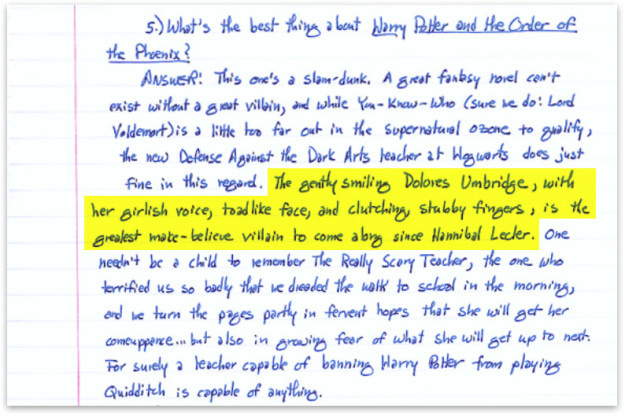 5.) What's the best thing about Harry Potter and the Order of
the Phoenix?
ANSWER: This one's a slam-dunk. A great fantasy novel can't
exist without a great villain, and while You-Know-Who (sure we do: Lord
Voldemort) is a little too far out in the supernatural ozone to qualify,
the new Defense Against the Dark Arts teacher at Hogwarts does just
fine in this regard. The gently smiling Dolores Umbridge, with
her girlish voice, toadlike face, and clutching, stubby fingers, is the
greatest make-believe villain to come along since Hannibal Lecter. One
needn't be a child to remember The Really Scary Teacher, the one who
terrified us so badly that we dreaded the walk to school in the morning,
and we turn the pages partly in fervent hopes that she will get her
comeuppance... but also in growing fear of what she will get up to next.
For surely a teacher capable of banning Harry Potter from playing
Quidditch is capable of anything.